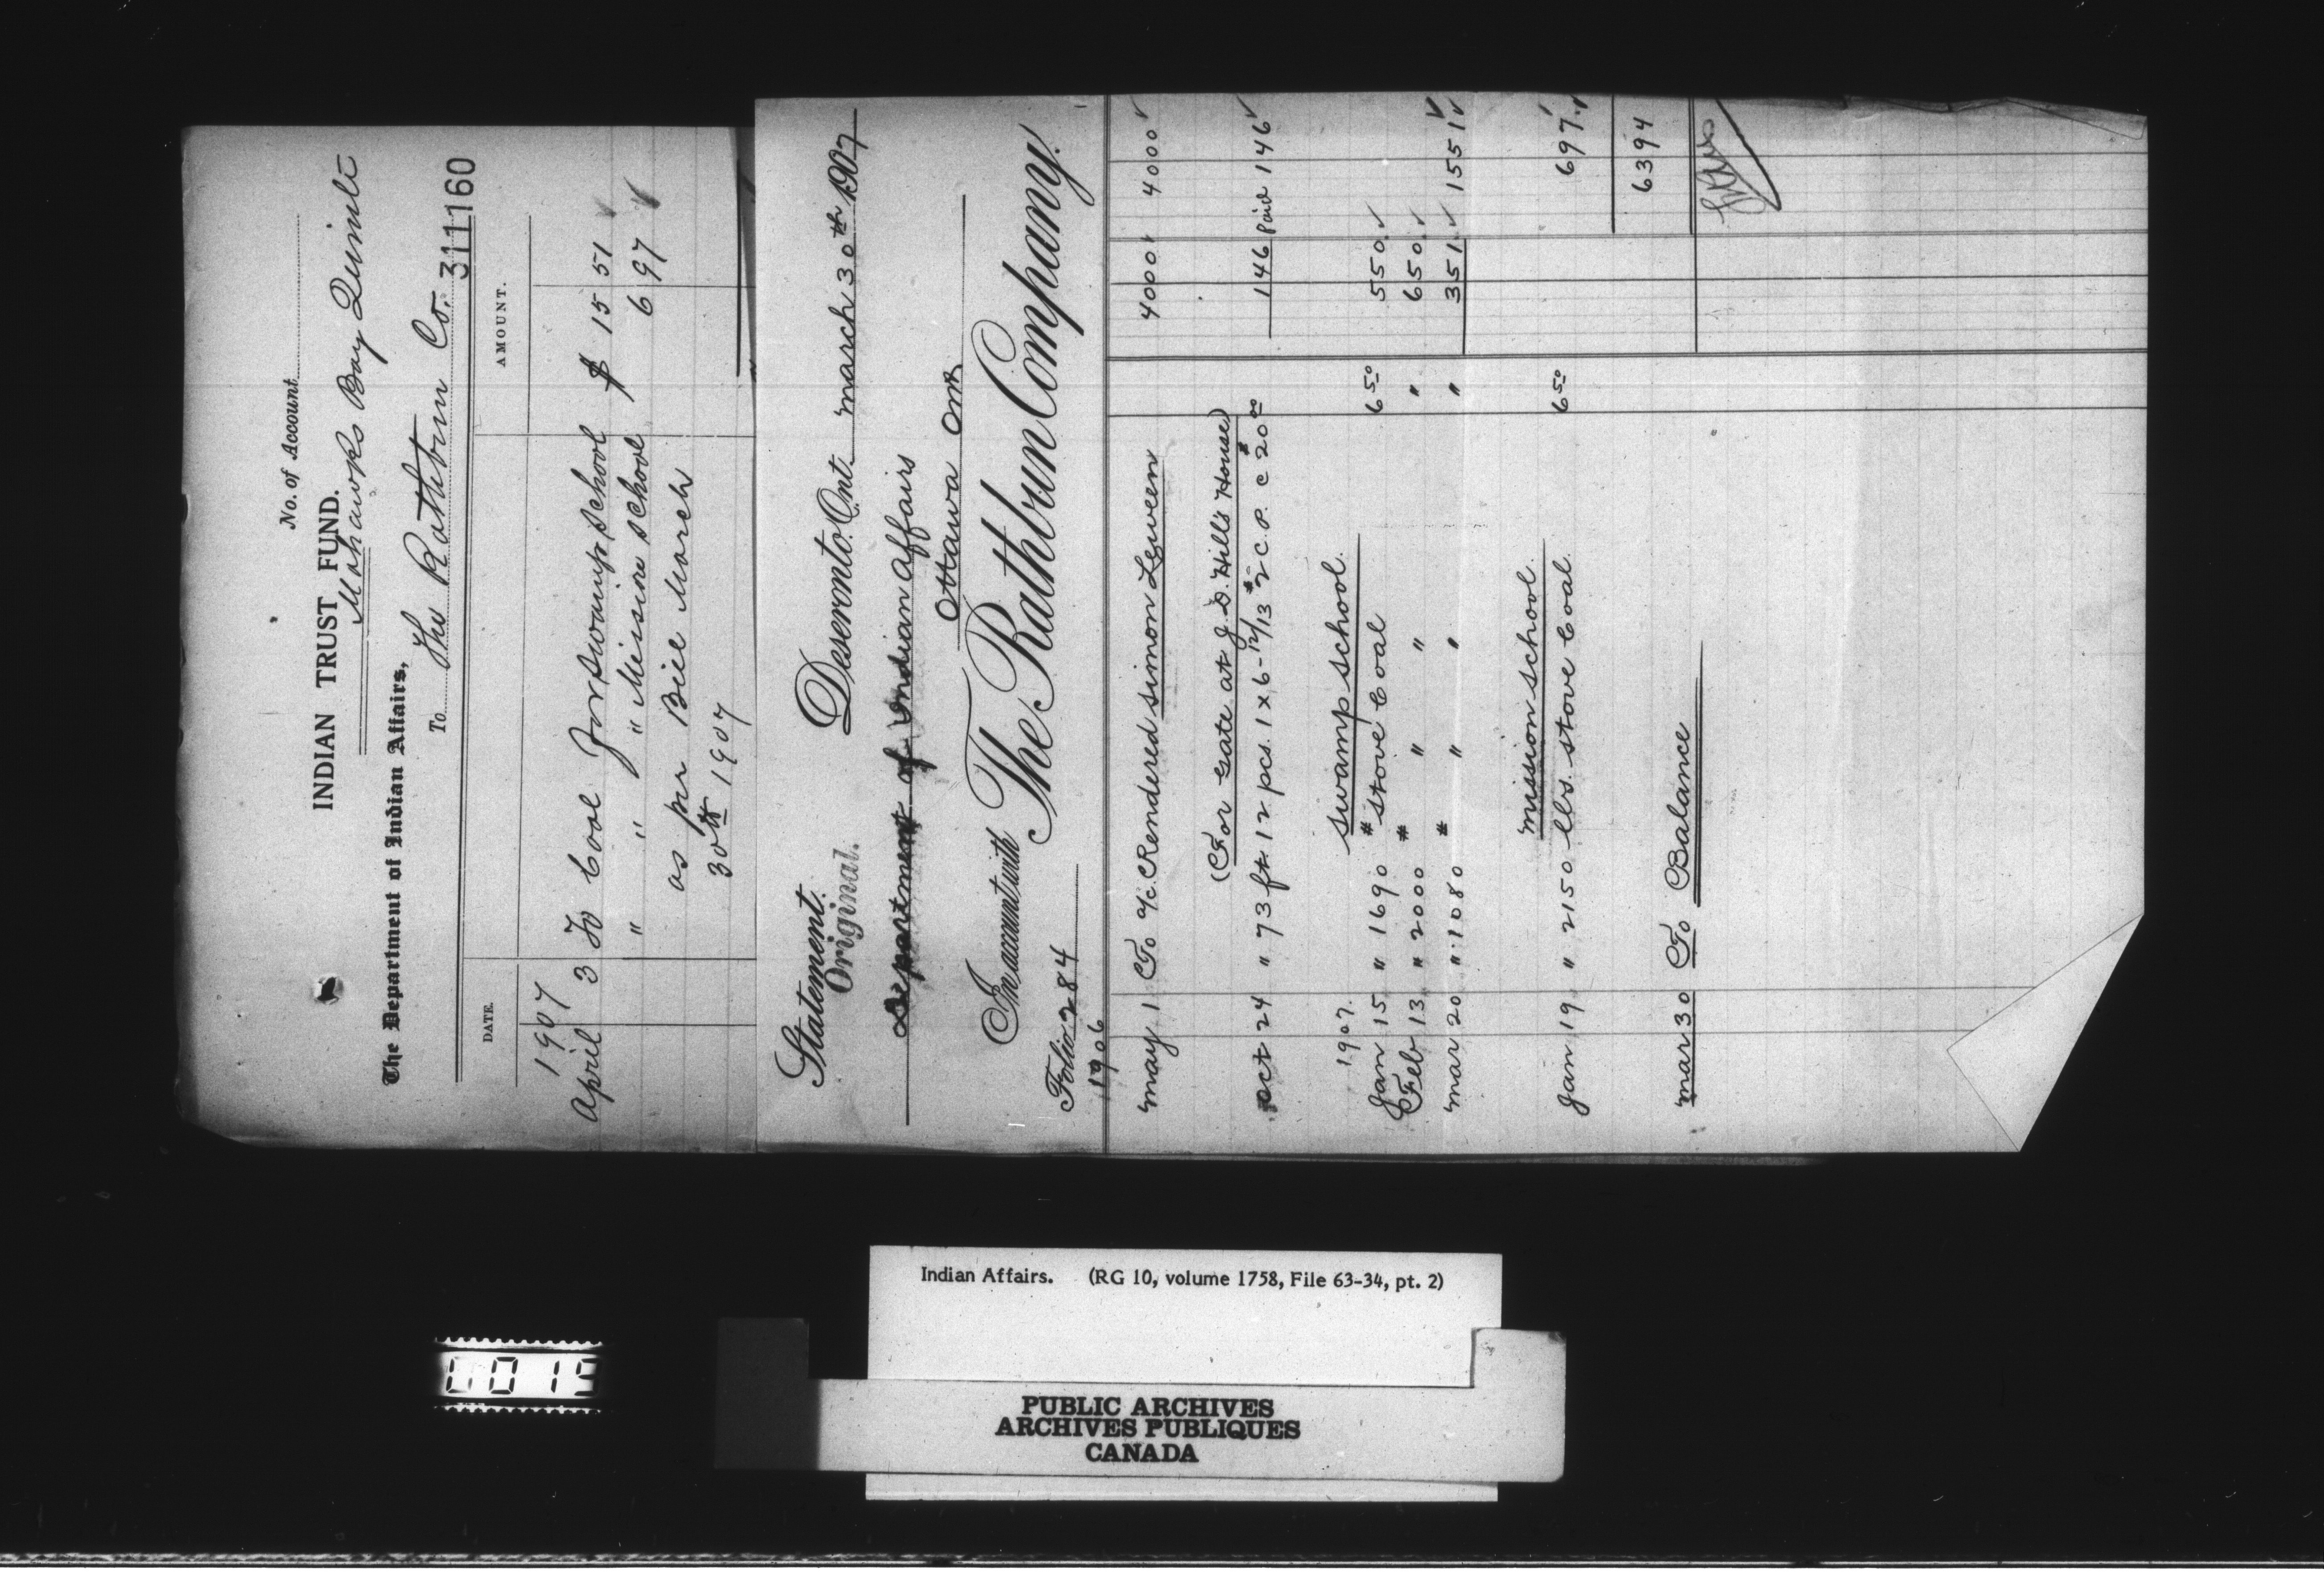 No. of Account
INDIAN TRUST FUND.
Mohawks Bay Quinte
The Department of Indian Affairs,
To The Rathbun Co. 311160
DATE. AMOUNT.
1907
April 3 To Coal for Swamp School $ 15 51 ✓
" " " Mission School 6 97 ✓
as per Bill March
30th 1907
Statement. Deseronto, Ont. March 30th 1907
Original.
Department of Indian Affairs
Ottawa Ont
In account with The Rathbun Company.
Folio 284
1906
May 1 To a/c Rendered Simon 4000 ✓ 4000 ✓
(For Gate at J.D. Hill's House)
Oct 24 " 73 ft 12 pcs. 1 x 6 - 12/13 # 2 C.P. C $ 20 00 146 Paid 146 ✓
Swamp School.
1907.
Jan 15 " 1690 # Stove Coal 6 50 550 ✓
Feb 13 " 2000 # " " " 650 ✓ ✓
Mar 20 " 1080 # " " " 351 ✓ 1551 ✓
Mission School.
Jan 19 " 2150 lbs. Stove Coal 6 50 697 ✓
6394
Mar 30 To Balance
Indian Affairs. (RG 10, volume 1758, File 63-34, pt. 2)
PUBLIC ARCHIVES
ARCHIVES PUBLIQUES
CANADA